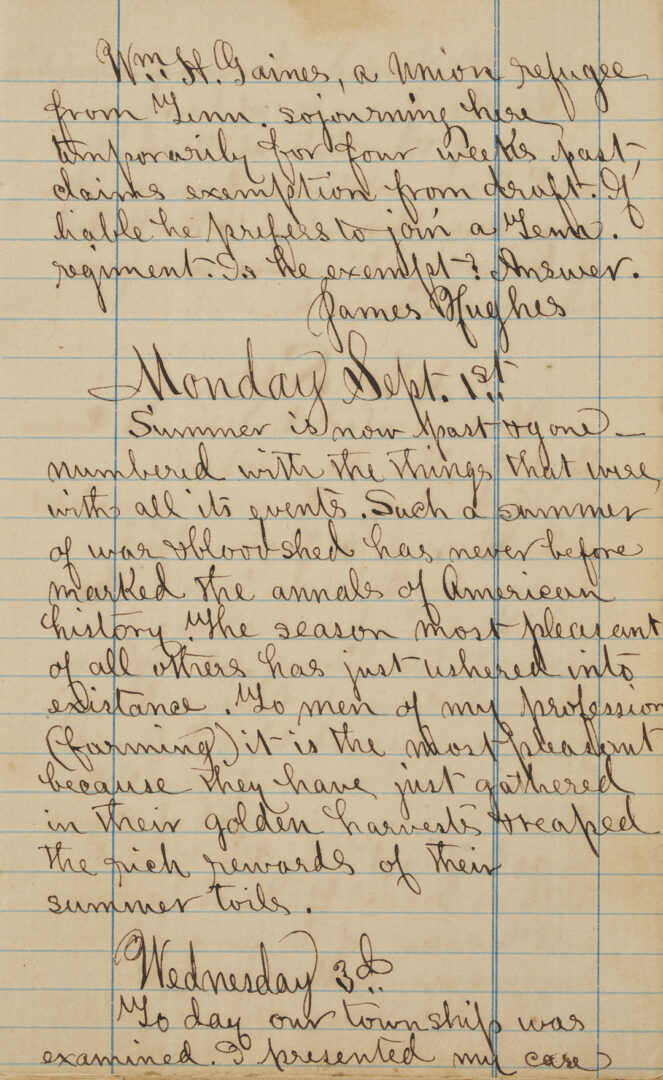 Wm. H. Gaines, a Union refugee
from Tenn. sojourning here
temporarily for four weeks past,
claims exemption from draft. If
liable he prefers to join a Tenn.
regiment. Is he exempt? Answer.
James Hughes
Monday Sept. 1st.
Summer is now past & gone –
numbered with the things that were,
with all its events. Such a summer
of war & bloodshed has never before
marked the annals of American
history. The season most pleasant
of all others has just ushered into
existance. To men of my profession
(farming) it is the most pleasant
because they have just gathered
in their golden harvests & reaped
the rich rewards of their
summer toils.
Wednesday 3d.
To day our township was
examined. I presented my case